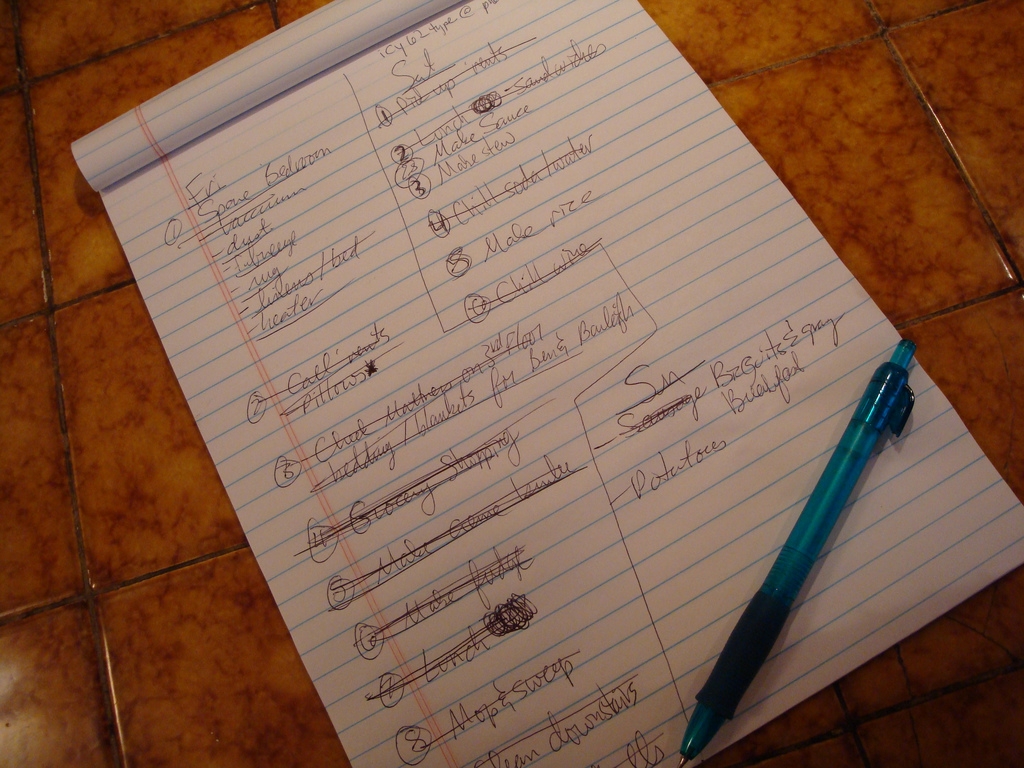 icy612type @
Fri
① Spare Bedroom
- Vaccuum
- dust
- rug
- linens/bed
- heater
② Call
- Pillows
③ Check Mattress on 2nd floor
- bedding/blankets for Ben & Benleigh
④ Grocery Shopping
⑤ Make
⑥ Make fudge
⑦ Lunch
⑧ Mop & sweep
clean downstairs
Sat
① Pick up
② Lunch - sandwiches
② Make Sauce
③ Make stew
④ Chill soda/water
⑤ Make rice
⑥ Chill wine
Sun
- Sausage Biscuits & gravy
Breakfast
- Potatoes